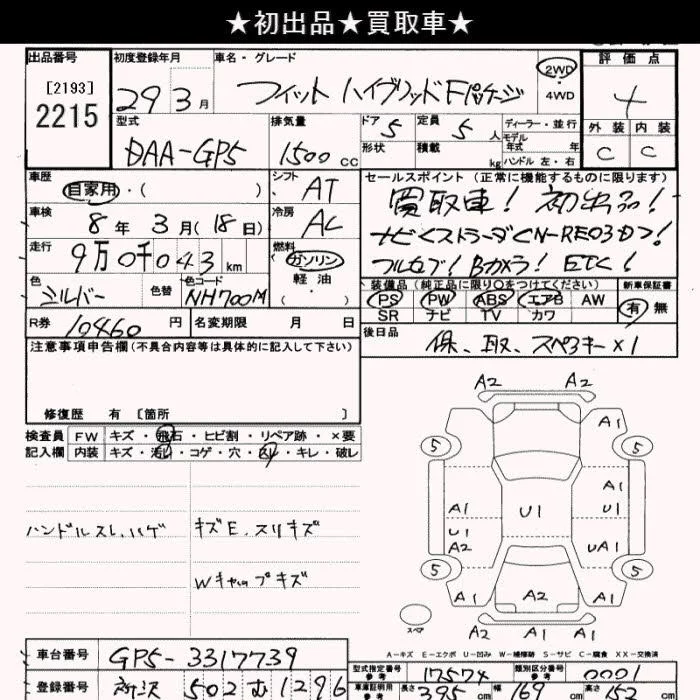 ★初出品★買取車★
出品番号 初度登録年月 車名・グレード 評価点
[2193]
2215
29 3月 フィット ハイブリッド Fパッケージ 2WD 4WD 4
型式 排気量 ドア 定員 ディーラー・並行 外装 内装
DAA-GP5 1500cc 5 5人 モデル年式 年 C C
形状 積載 kg ハンドル 左・右
車歴 自家用・( ) シフト AT セールスポイント(正常に機能するものに限ります)
車検 8年 3月(18日) 冷房 AC 買取車! 初出品!
走行 9万0千043km 燃料 ガソリン 軽油 ( ・ )
フルセグ! Bカメラ! ETC!
色 シルバー 色替 色コード NH700M
装備品(純正品に限り○をつけてください) 新車保証書
PS PW ABS エアB AW 有 無
SR ナビ TV カワ
R券 10460円 名変期限 月 日
後日品 保、取、スペアキー×1
注意事項申告欄(不具合内容等は具体的に記入して下さい)
修復歴 有 [箇所 ]
検査員 FW キズ・飛石・ヒビ割・リペア跡・×要
記入欄 内装 キズ・汚れ・コゲ・穴・スレ・キレ・破レ
ハンドルスレ、ハゲ キズE、スリキズ
Wキャップキズ
A2 A2
A1
5 5
A1
A1 U1 U1
U1
A2 UA1
5 5
A1 A2 A1
スペア
A2 A1 A1
A-キズ E-エクボ U-凹み W-補修跡 S-サビ C-腐食 XX-交換済
車台番号 GP5-3317739
型式指定番号 参考 17574 類別区分番号 参考 0001
登録番号 所沢 502 む 1296
車庫証明用 参考 長さ 395cm 幅 169cm 高さ 152cm